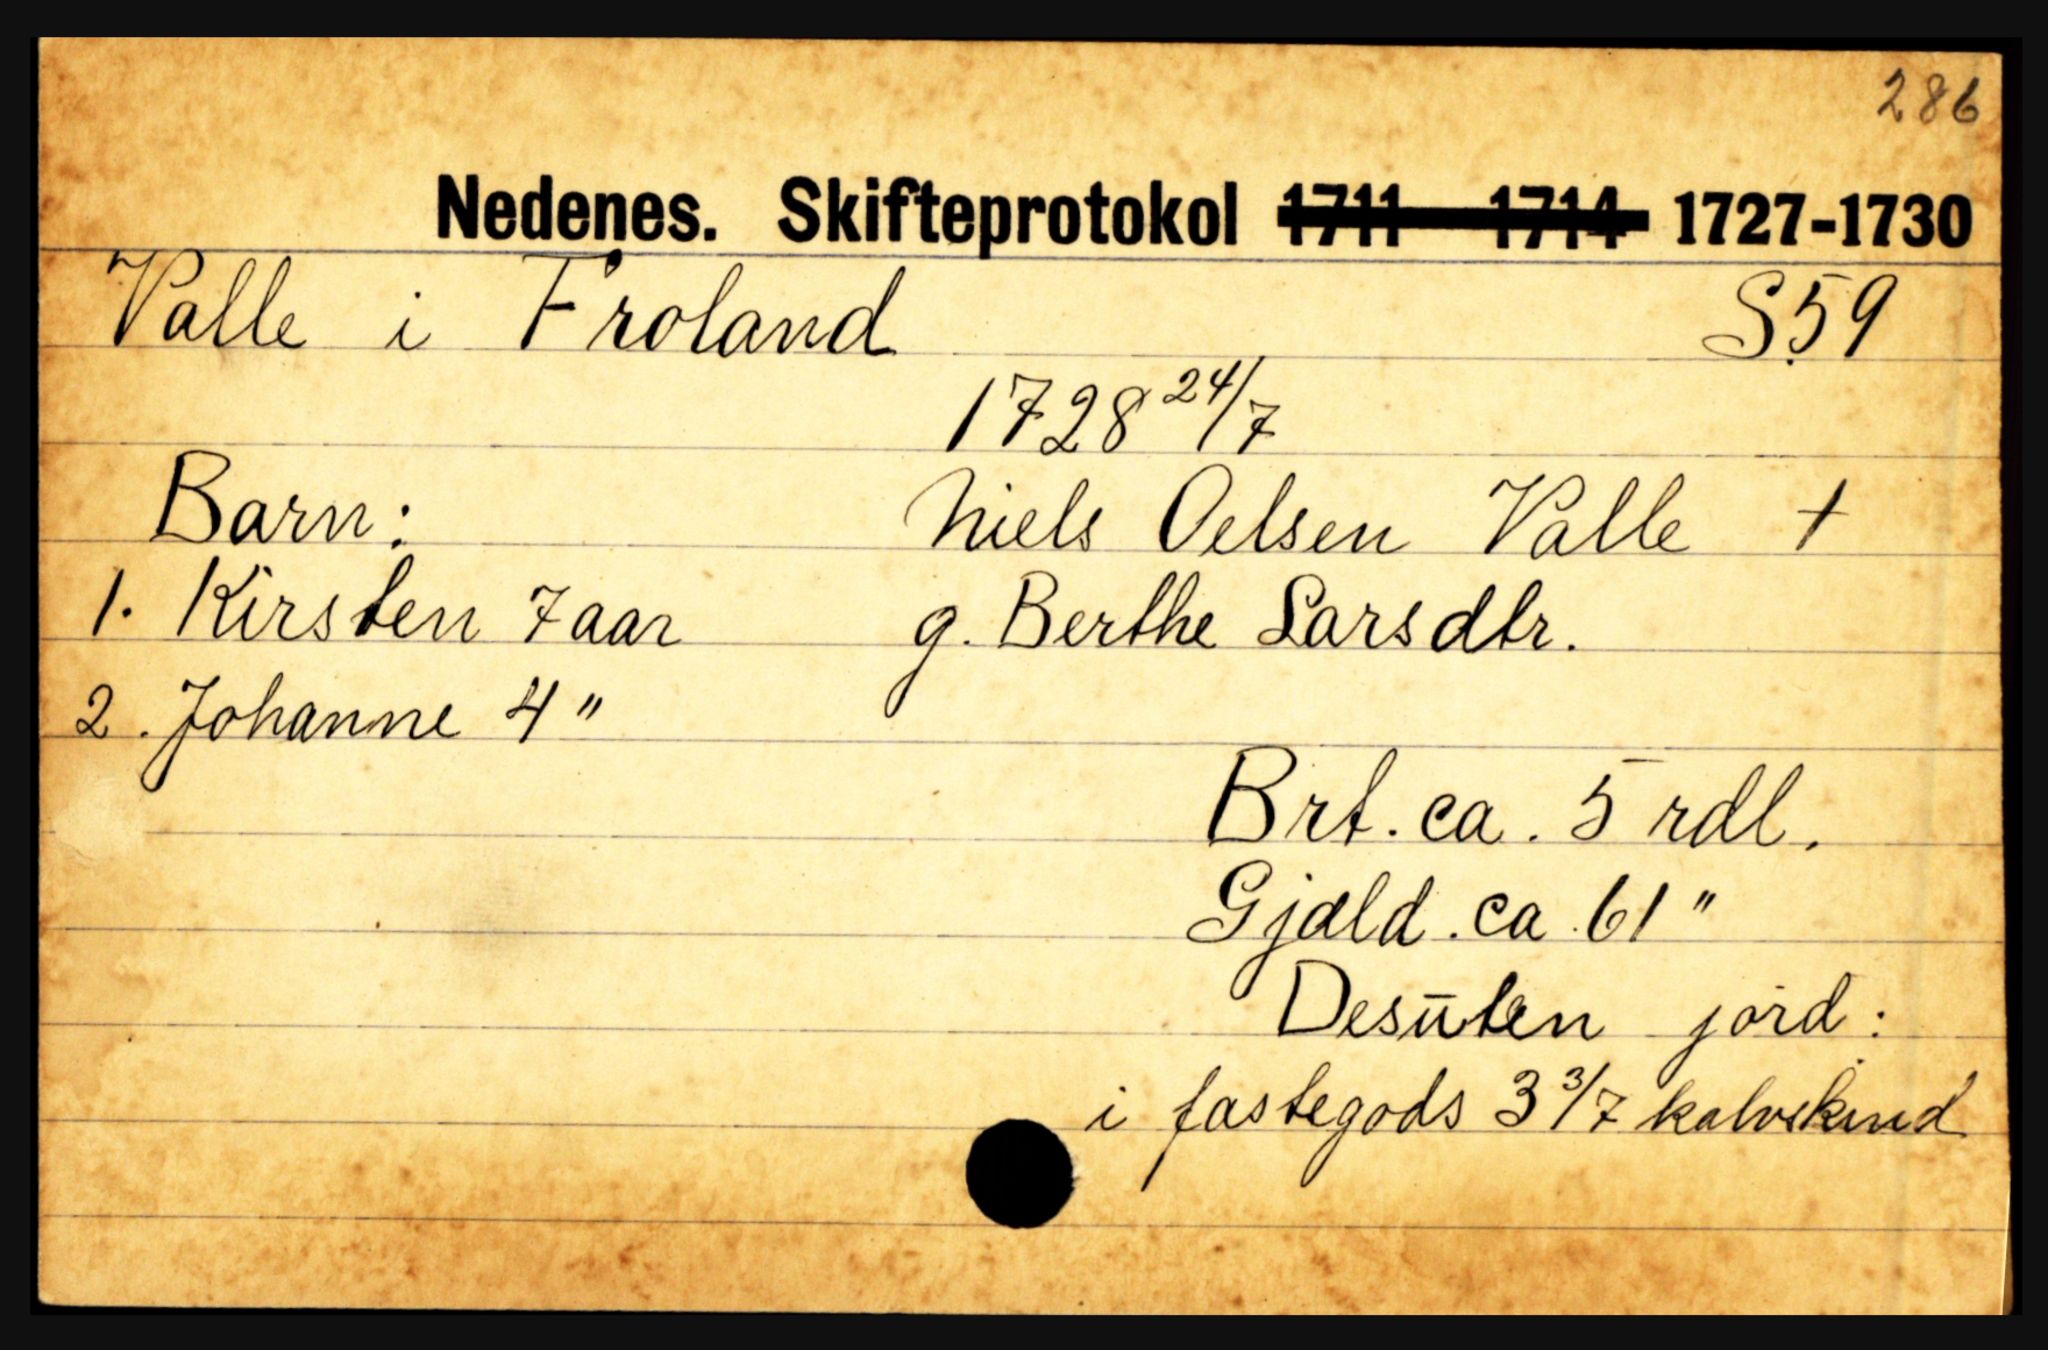 286
Nedenes. Skifteprotokol 1711 - 1714 1727-1730
Valle i Froland S. 59
1728 24/7
Barn: Niels Oelsen Valle †
1. Kirsten 7 aar g. Berthe Larsdtr.
2. Johanne 4 "
Brt. ca. 5 rdl.
Gjæld. ca. 61 "
Desūten jord:
i fastegods 3 3/7 kalvskind